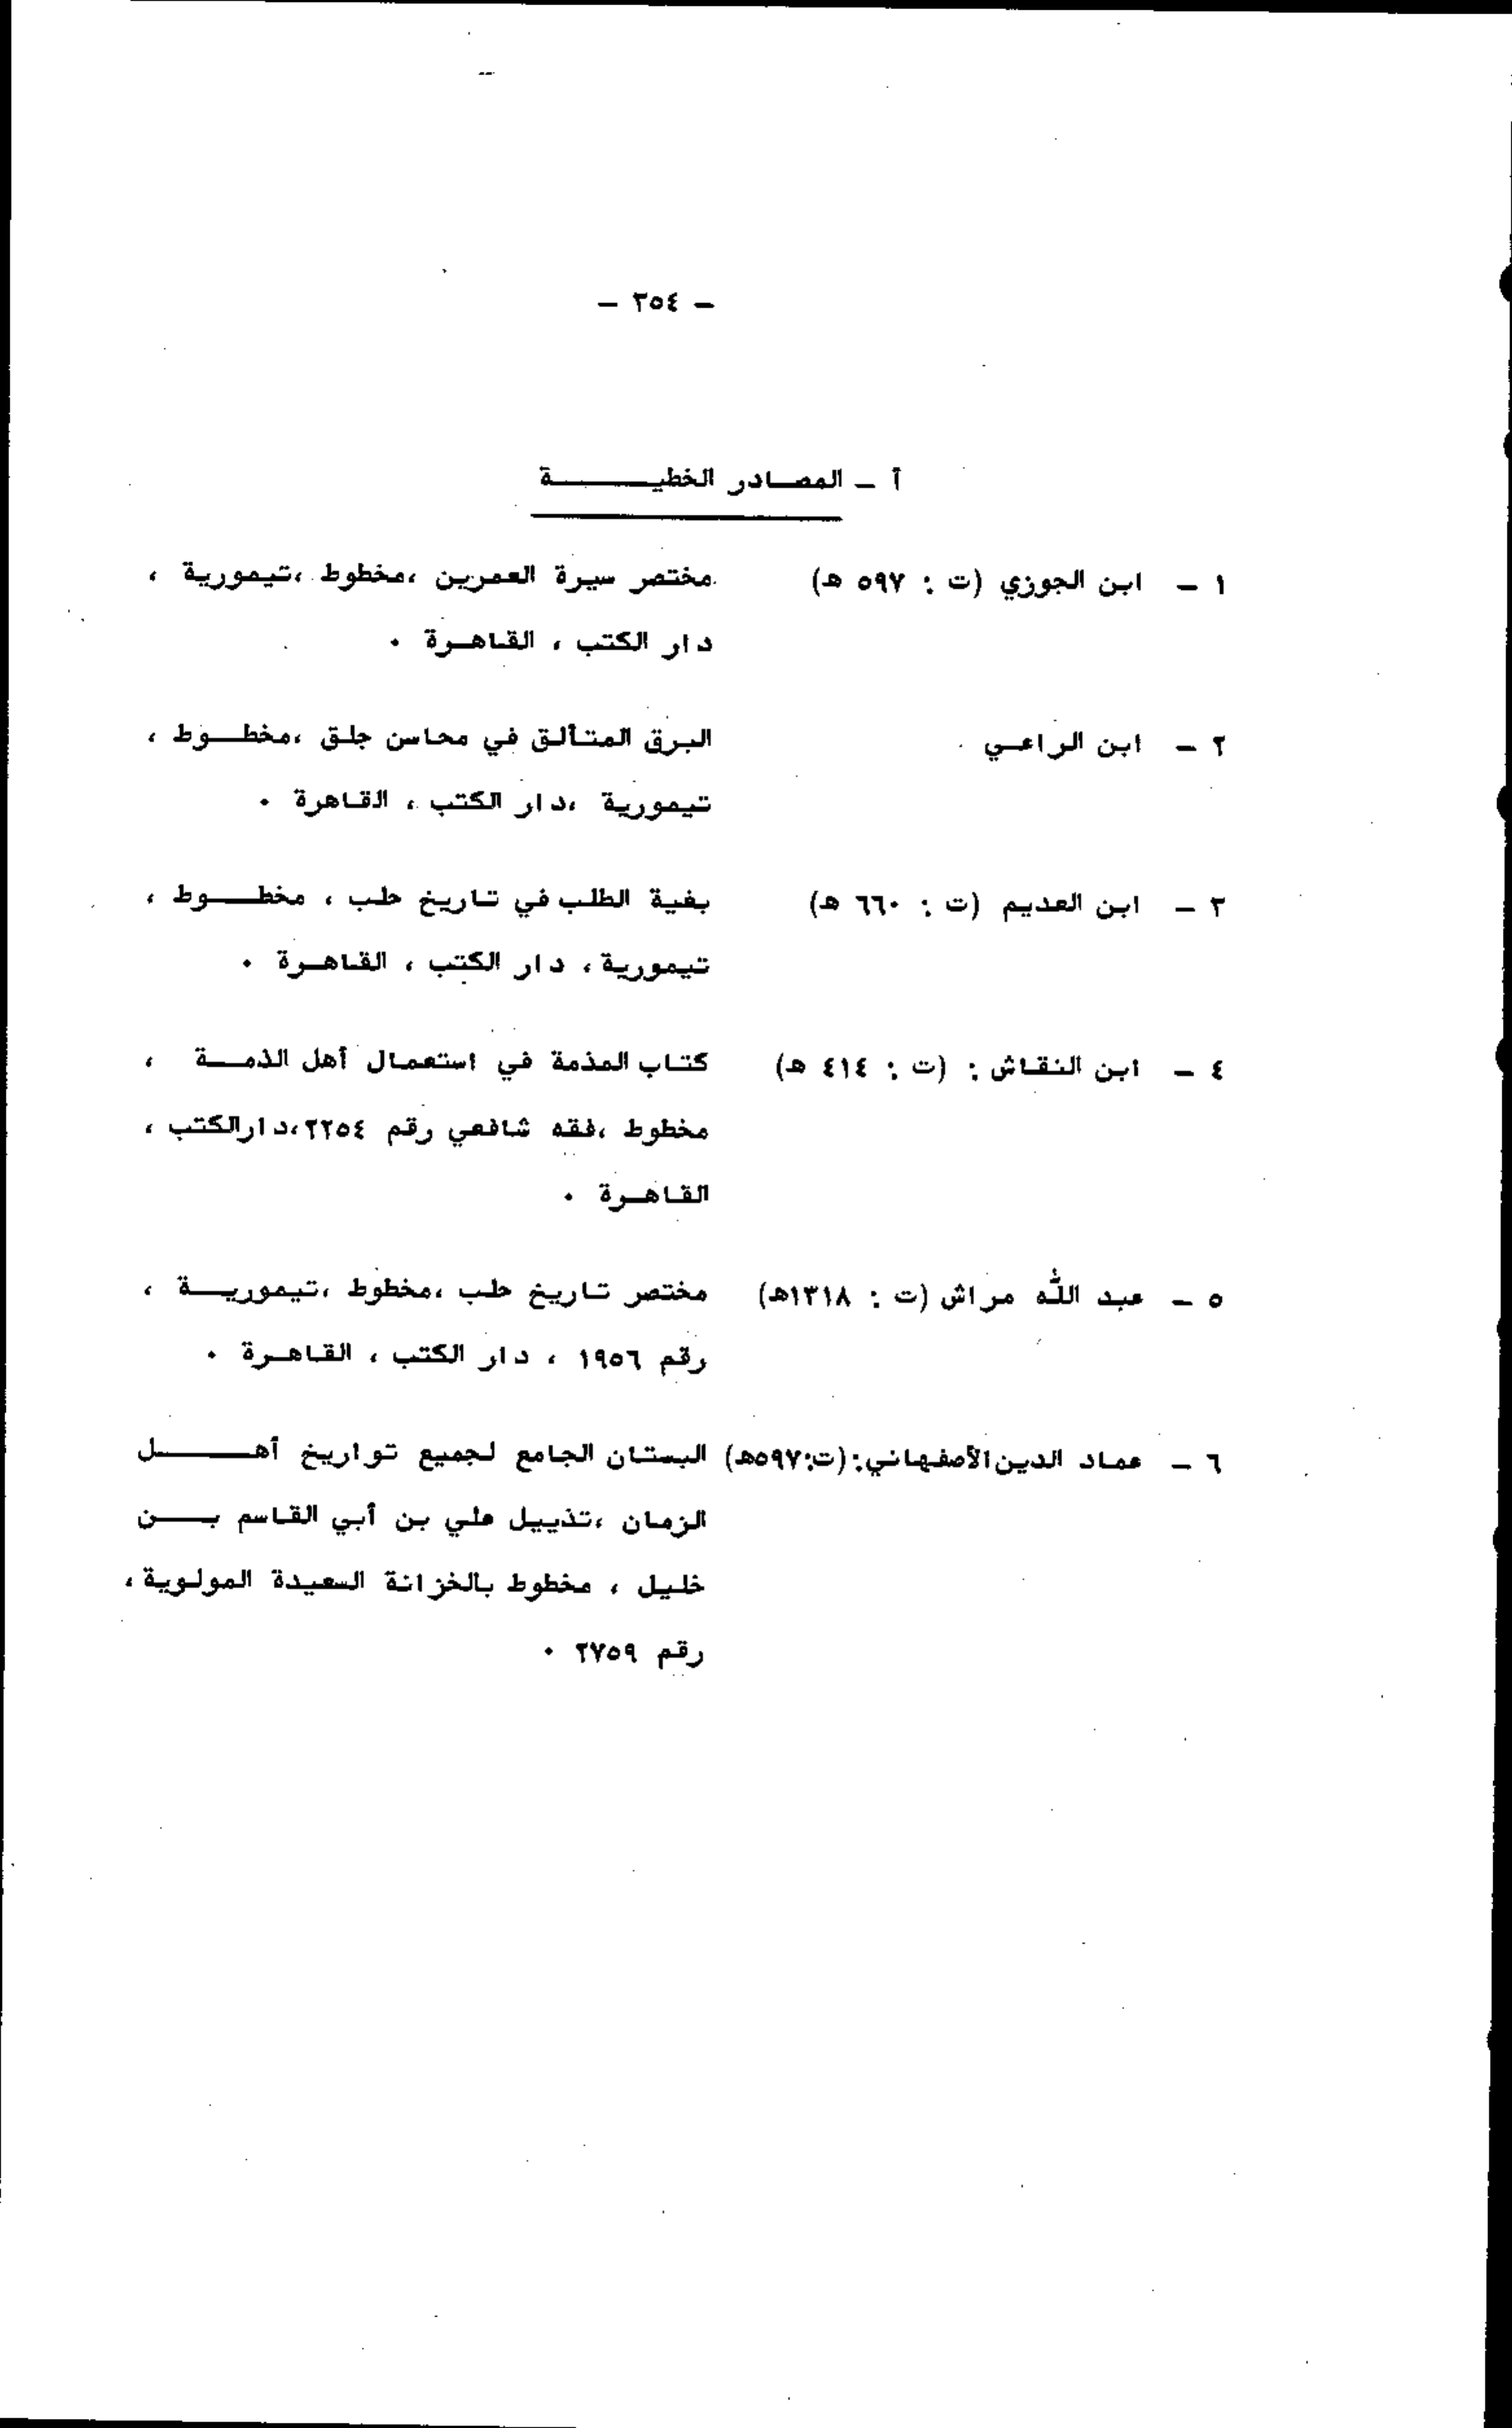 - ٢٥٤ -
أ - المصادر الخطية
١ - ابن الجوزي (ت : ٥٩٧ ه) مختصر سيرة العمرين ،مخطوط ،تيمورية ،
دار الكتب ، القاهرة .
٢ - ابن الراعي البرق المتألق في محاسن جلق ،مخطوط ،
تيمورية ،دار الكتب ، القاهرة .
٣ - ابن العديم (ت : ٦٦٠ ه) بغية الطلب في تاريخ حلب ، مخطوط ،
تيمورية ، دار الكتب ، القاهرة .
٤ - ابن النقاش : (ت : ٤١٤ ه) كتاب المذمة في استعمال أهل الذمة ،
مخطوط ،فقه شافعي رقم ٢٢٥٤ ،دار الكتب ،
القاهرة .
٥ - عبد الله مراش (ت : ١٣١٨ه) مختصر تاريخ حلب ،مخطوط ،تيمورية ،
رقم ١٩٥٦ ، دار الكتب ، القاهرة .
٦ - عماد الدين الأصفهاني : (ت:٥٩٧ه) البستان الجامع لجميع تواريخ أهل
الزمان ،تذييل علي بن أبي القاسم بن
خليل ، مخطوط بالخزانة السعيدة المولوية ،
رقم ٢٧٥٩ .